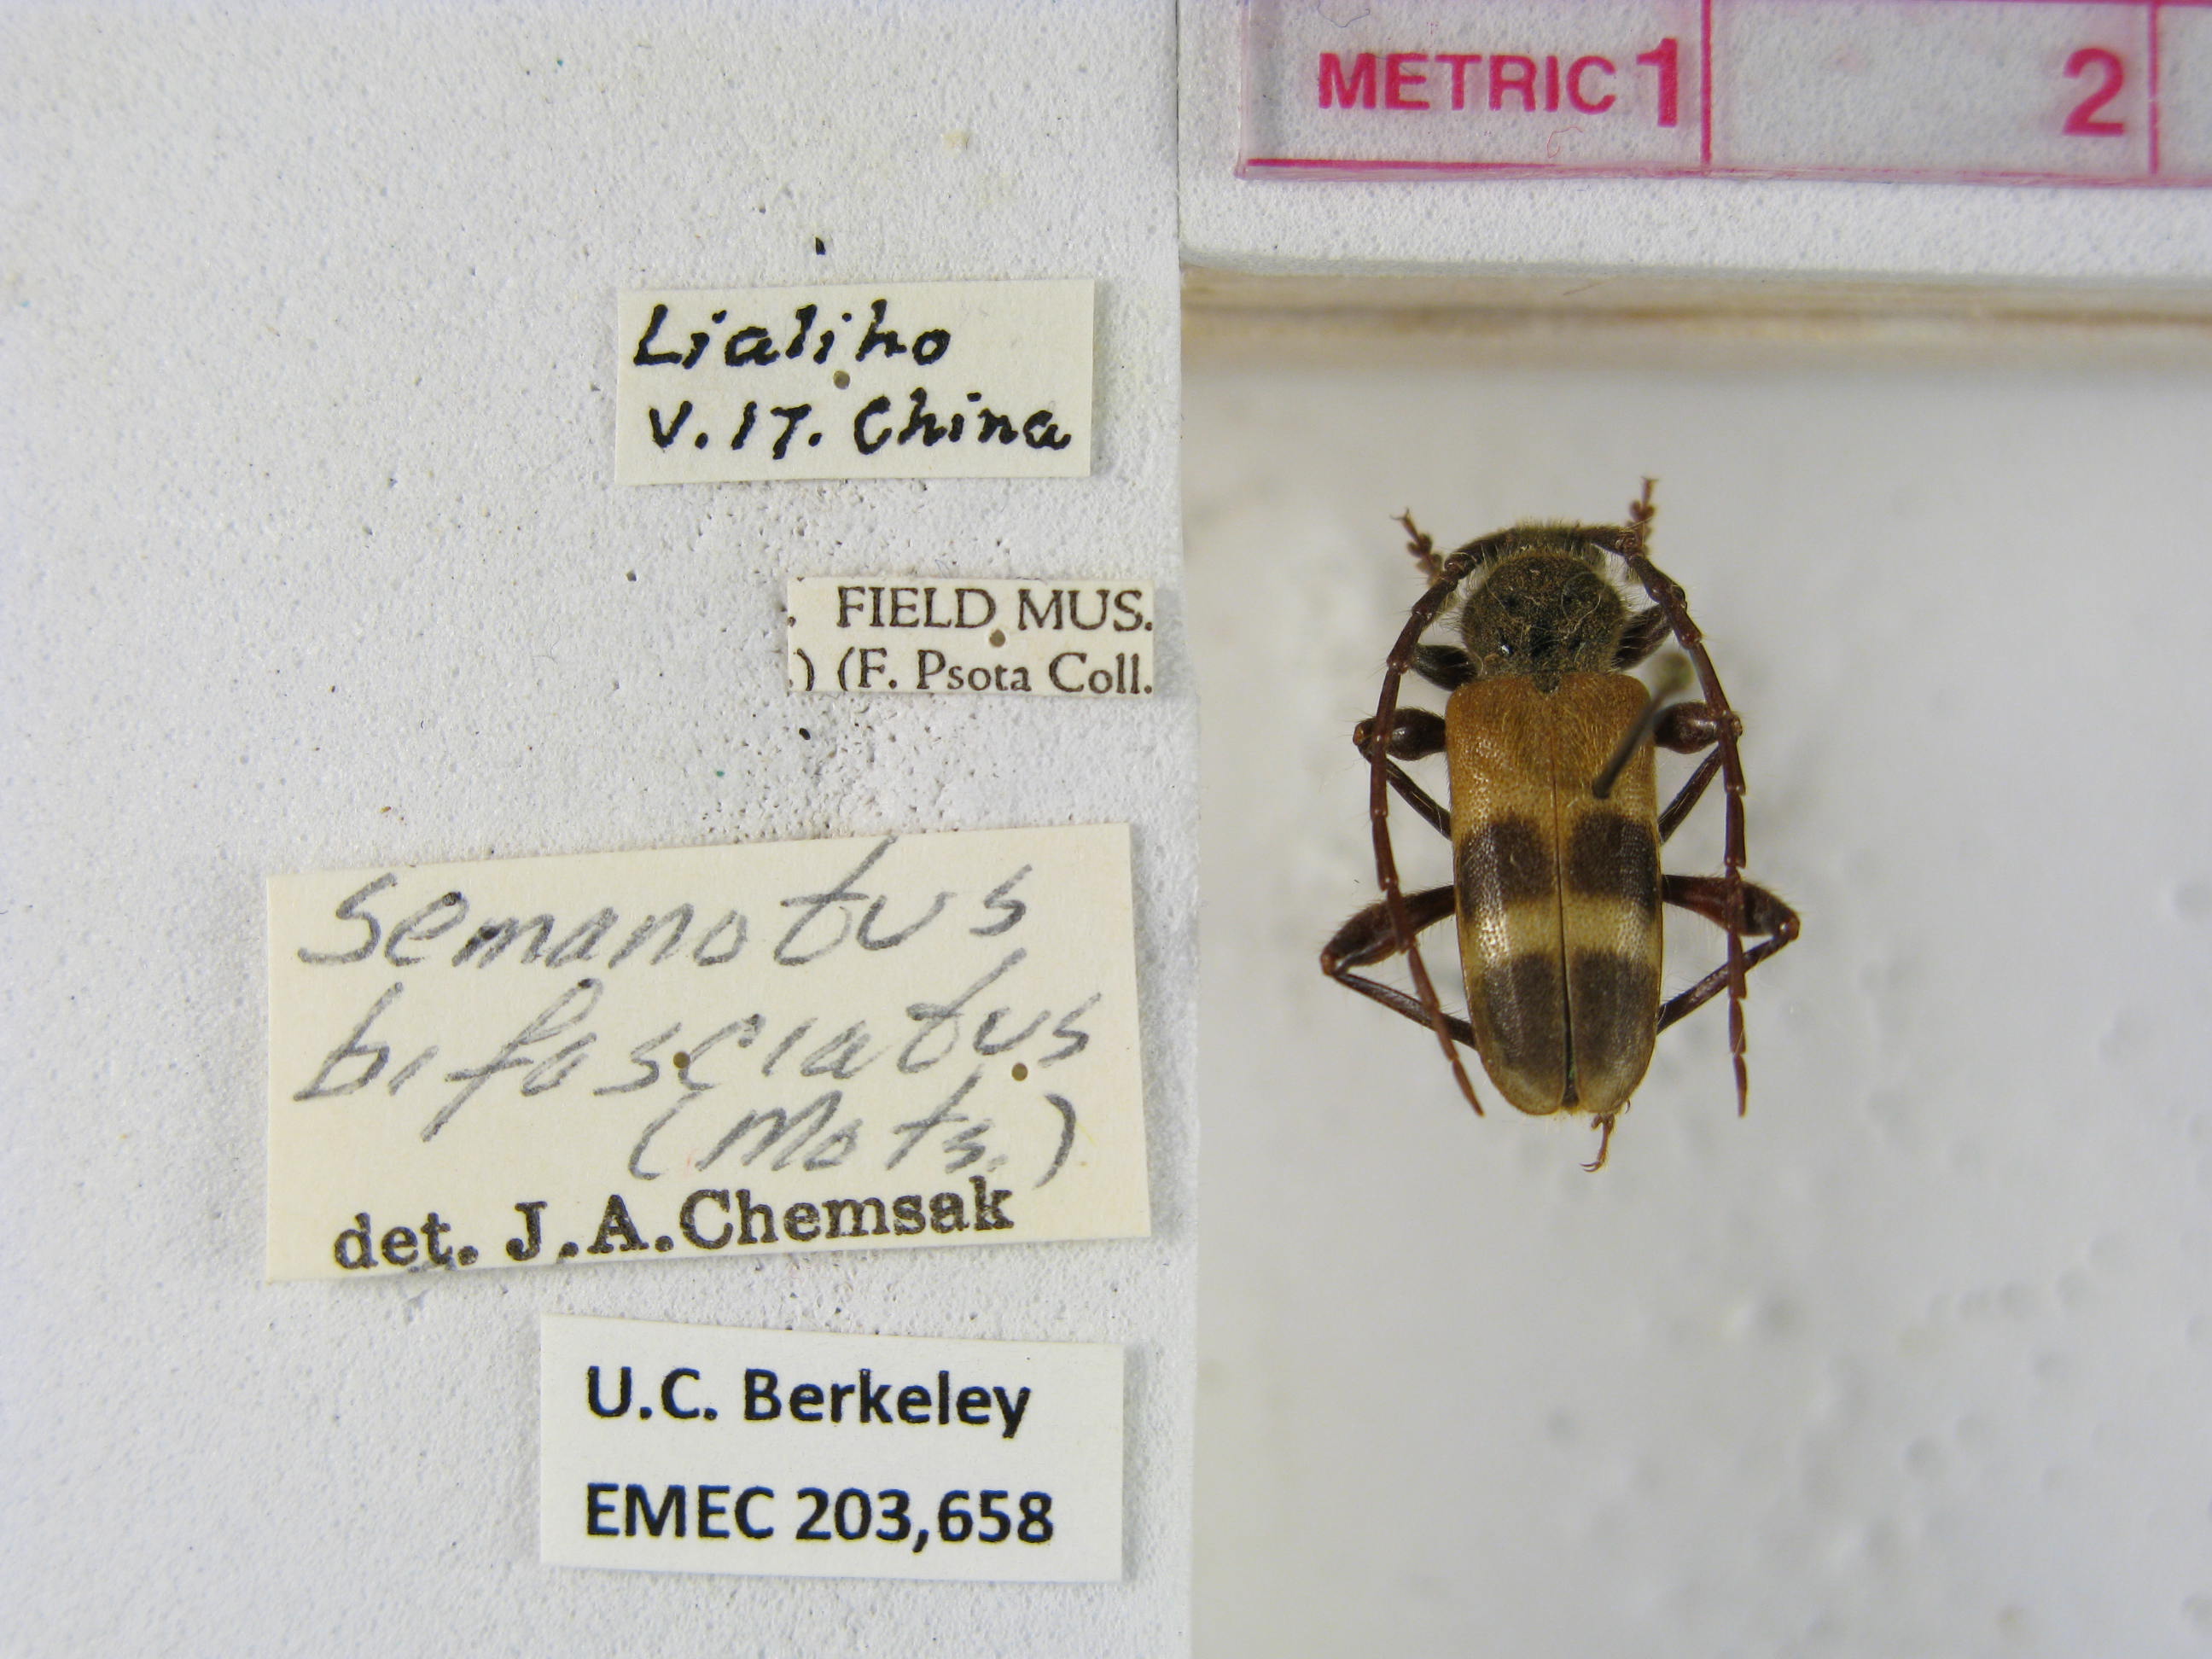 METRIC 1 2
Lialiho
V. 17. China
. FIELD MUS.
.) (F. Psota Coll.
Semanotus
bifasciatus
(Mots.)
det. J. A. Chemsak
U.C. Berkeley
EMEC 203,658